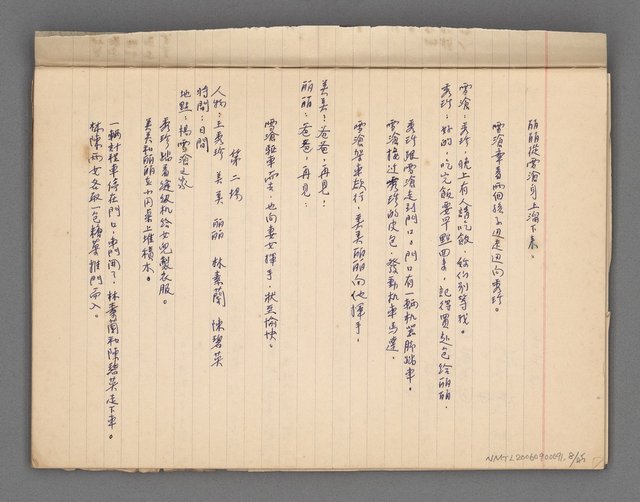 丽丽從雪滄身上溜下來。
雪滄牽着两個孩子边走边向秀珍。
雪滄：秀珍，晚上有人請吃飯，給你别等我。
秀珍：好的，吃完飯要早點回來，記得買麵包給丽丽。
秀珍跟雪滄走到門口。門口有一輛机器脚踏車。
雪滄接过秀珍的皮包，發動机車馬達，
雪滄架車啟行，美美丽丽向他揮手。
美美：爸爸，再見！
丽丽：爸爸，再見！
雪滄駈車而去，也向妻女揮手，状至愉快。
第二場
人物：王秀珍 美美 丽丽 林素蘭 陳碧英
時間：日間
地點：楊雪滄之家
秀珍踏着縫紉机給女兒製衣服。
美美和丽丽在小円桌上堆積木。
一輛計程車停在門口，車門開了，林素蘭和陳碧英走下車。
林陳两女各取一包精著推門而入。
NMTL20060900091, 8/25